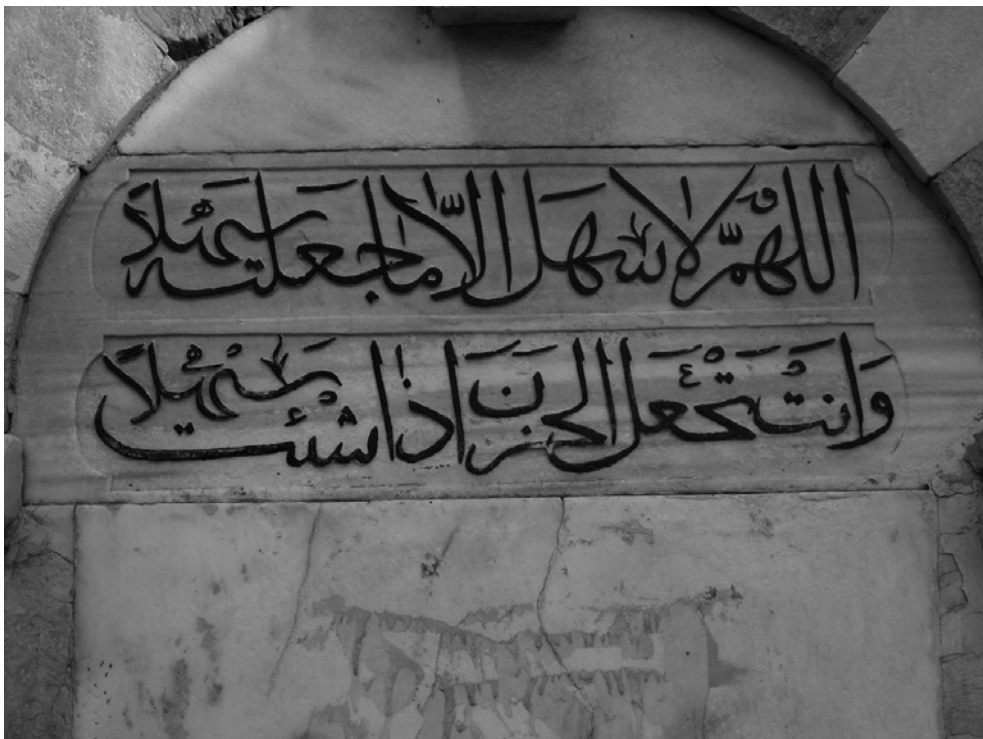 اللهم لا سهل الا ما جعلته سهلا
وانت تجعل الحزن اذا شئت سهلا